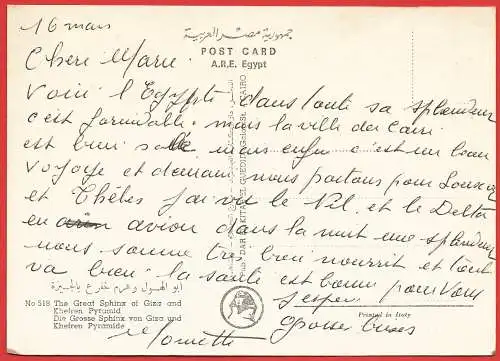 16 mars
جمهورية مصر العربية
POST CARD
A.R.E. Egypt
Cheri Marie
Voici l'Egypte dans toute sa splendeur
c'est formidable mais la ville du Caire
est bien sale mais enfin c'est un beau
voyage et demain nous partons pour Louxor
et Thèbes j'ai vu le Nil et le Delta
en avion dans la nuit une splendeur
nous somme très bien nourrit et tout
va bien la santé est bonne pour vous
j'espère
Grosse bises
أبو الهول وهرم خفرع بالجيزة
No 518 The Great Sphinx of Giza and
Khefren Pyramid
Die Grosse Sphinx von Giza und
Khefren Pyramide
Printed in Italy